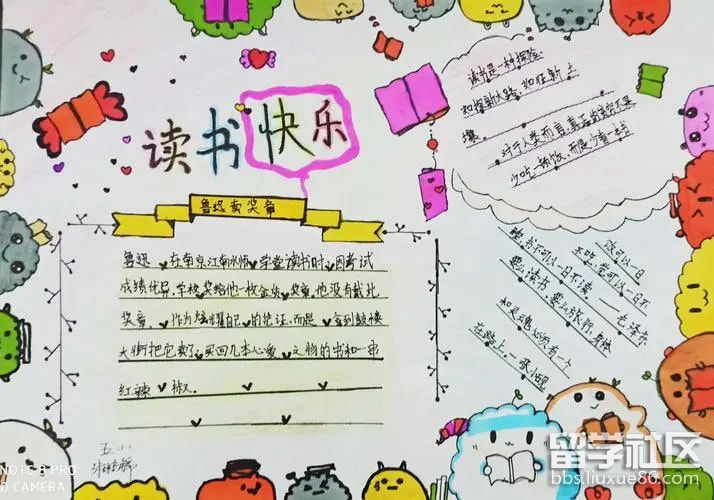 读书快乐
鲁迅卖奖章
鲁迅在南京江南水师学堂读书时因考试
成绩优异,学校奖给他一枚金质奖章,他没有戴此
奖章,作为炫耀自己的凭证,而是拿到鼓楼
大街把它卖了,买回几本心爱之物的书和一串
红辣椒.
读书是一种探险.
如探新大陆,如征新土
壤.
对于人类而言,真正的贫穷不是
少吃一顿饭,而是少看一本书
饭可以一日
不吃,觉可以一日不
睡,书不可以一日不读——毛泽东
要么读书,要么旅行,身体
和灵魂必须有一个
在路上.
五
NOTE 8 PRO
D CAMERA
留学社区
bbs.liuxue86.com